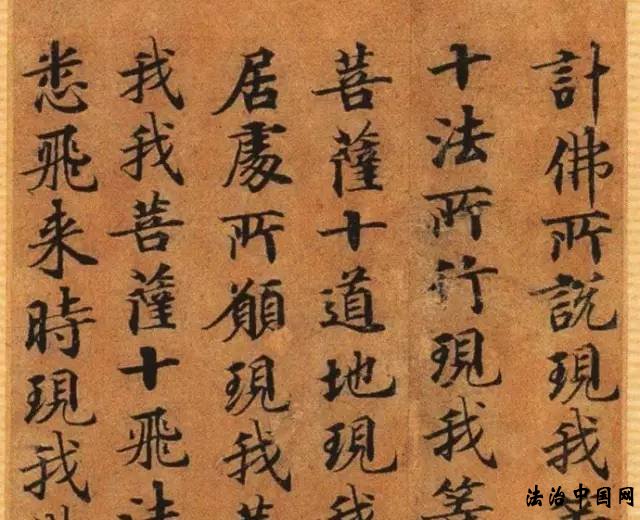 計佛所說現我
十法所行現我等
菩薩十道地現我
居處所願現我
我我菩薩十飛法
悉飛来時現我
法治中国网